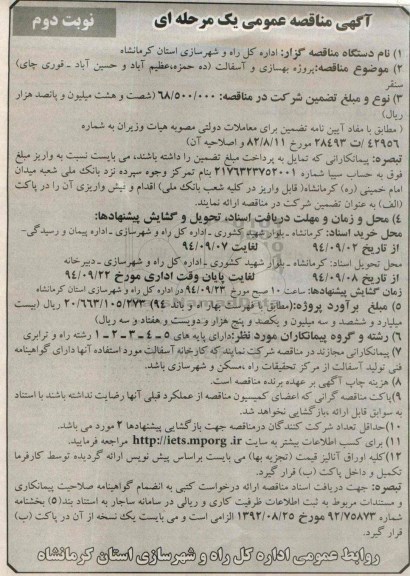 آگهی مناقصه عمومی یک مرحله ای
نوبت دوم
۱) نام دستگاه مناقصه گزار: اداره کل راه و شهرسازی استان کرمانشاه
۲) موضوع مناقصه: پروژه بهسازی و آسفالت (ده حمزه،عظیم آباد و حسین آباد ـ قوری چای)
سنقر
۳) نوع و مبلغ تضمین شرکت در مناقصه: ۶۸/۵۰۰/۰۰۰ (شصت و هشت میلیون و پانصد هزار
ریال)
( مطابق با مفاد آیین نامه تضمین برای معاملات دولتی مصوبه هیات وزیران به شماره
۴۲۹۵۶ /ت ۲۸۴۹۳ مورخ ۸۲/۸/۱۱ و اصلاحیه آن)
تبصره: پیمانکارانی که تمایل به پرداخت مبلغ تضمین را داشته باشند، می بایست نسبت به واریز مبلغ
فوق به حساب سیبا شماره ۲۱۷۶۳۲۳۷۵۲۰۰۱ بنام تمرکز وجوه سپرده نزد بانک ملی شعبه میدان
امام خمینی (ره) کرمانشاه( قابل واریز در کلیه شعب بانک ملی) اقدام و فیش واریزی آن را در پاکت
(الف) به عنوان تضمین شرکت در مناقصه ارائه نمایند.
۴) محل و زمان و مهلت دریافت اسناد، تحویل و گشایش پیشنهادها:
محل خرید اسناد: کرمانشاه ـ بلوار شهید کشوری ـ اداره کل راه و شهرسازی ـ اداره پیمان و رسیدگی-
از تاریخ ۹۴/۰۹/۰۲ لغایت ۹۴/۰۹/۰۷
محل تحویل اسناد: کرمانشاه ـ بلوار شهید کشوری ـ اداره کل راه و شهرسازی ـ دبیرخانه
از تاریخ ۹۴/۰۹/۰۸ لغایت پایان وقت اداری مورخ ۹۴/۰۹/۲۲
زمان گشایش پیشنهادها: ساعت ۱۰ صبح مورخ ۹۴/۰۹/۲۳ در اداره کل راه و شهرسازی استان کرمانشاه
۵) مبلغ برآورد پروژه:(مطابق با فهرست بهار راه و باند ۹۴) ۲۰/۶۶۳/۱۰۵/۲۷۳ ریال (بیست
میلیارد و ششصد و سه میلیون و یکصد و پنج هزار و دویست و هفتاد و سه ریال)
۶) رشته و گروه پیمانکاران مورد نظر:دارای پایه های ۵ ـ ۴ ـ ۳ ـ ۲ ـ ۱ رشته راه و ترابری
۷) پیمانکارانی مجازند در مناقصه شرکت نمایند که کارخانه آسفالت مورد استفاده آنها دارای گواهینامه
فنی تولید آسفالت از مرکز تحقیقات راه ،مسکن و شهرسازی باشد.
۸) هزینه چاپ آگهی بر عهده برنده مناقصه است.
۹)پاکت مناقصه گرانی که اعضای کمیسیون مناقصه از عملکرد قبلی آنها رضایت نداشته باشند با استناد
به سوابق قابل ارائه ،بازگشایی نخواهد شد.
۱۰)حداقل تعداد شرکت کنندگان درمناقصه جهت بازگشایی پیشنهادها ۲ مورد می باشد.
۱۱) برای کسب اطلاعات بیشتر به سایت http://iets.mporg.ir مراجعه فرمایید.
۱۲)کلیه اوراق آنالیز قیمت (تجزیه بها) می بایست براساس پیش نویس ارائه گردیده توسط کارفرما
تکمیل و داخل پاکت (ب) قرار گیرد.
تبصره: جهت دریافت اسناد مناقصه ارائه درخواست کتبی به انضمام گواهینامه صلاحیت پیمانکاری
و مستندات مربوط به ثبت اطلاعات ظرفیت کاری و ریالی در سامانه ساجار به استناد بند(۵) بخشنامه
شماره ۹۲/۷۵۸۷۳ مورخ ۱۳۹۲/۰۸/۲۵ الزامی است و می بایست یک نسخه از آن در پاکت (ب)
قرار گیرد.
روابط عمومی اداره کل راه و شهرسازی استان کرمانشاه